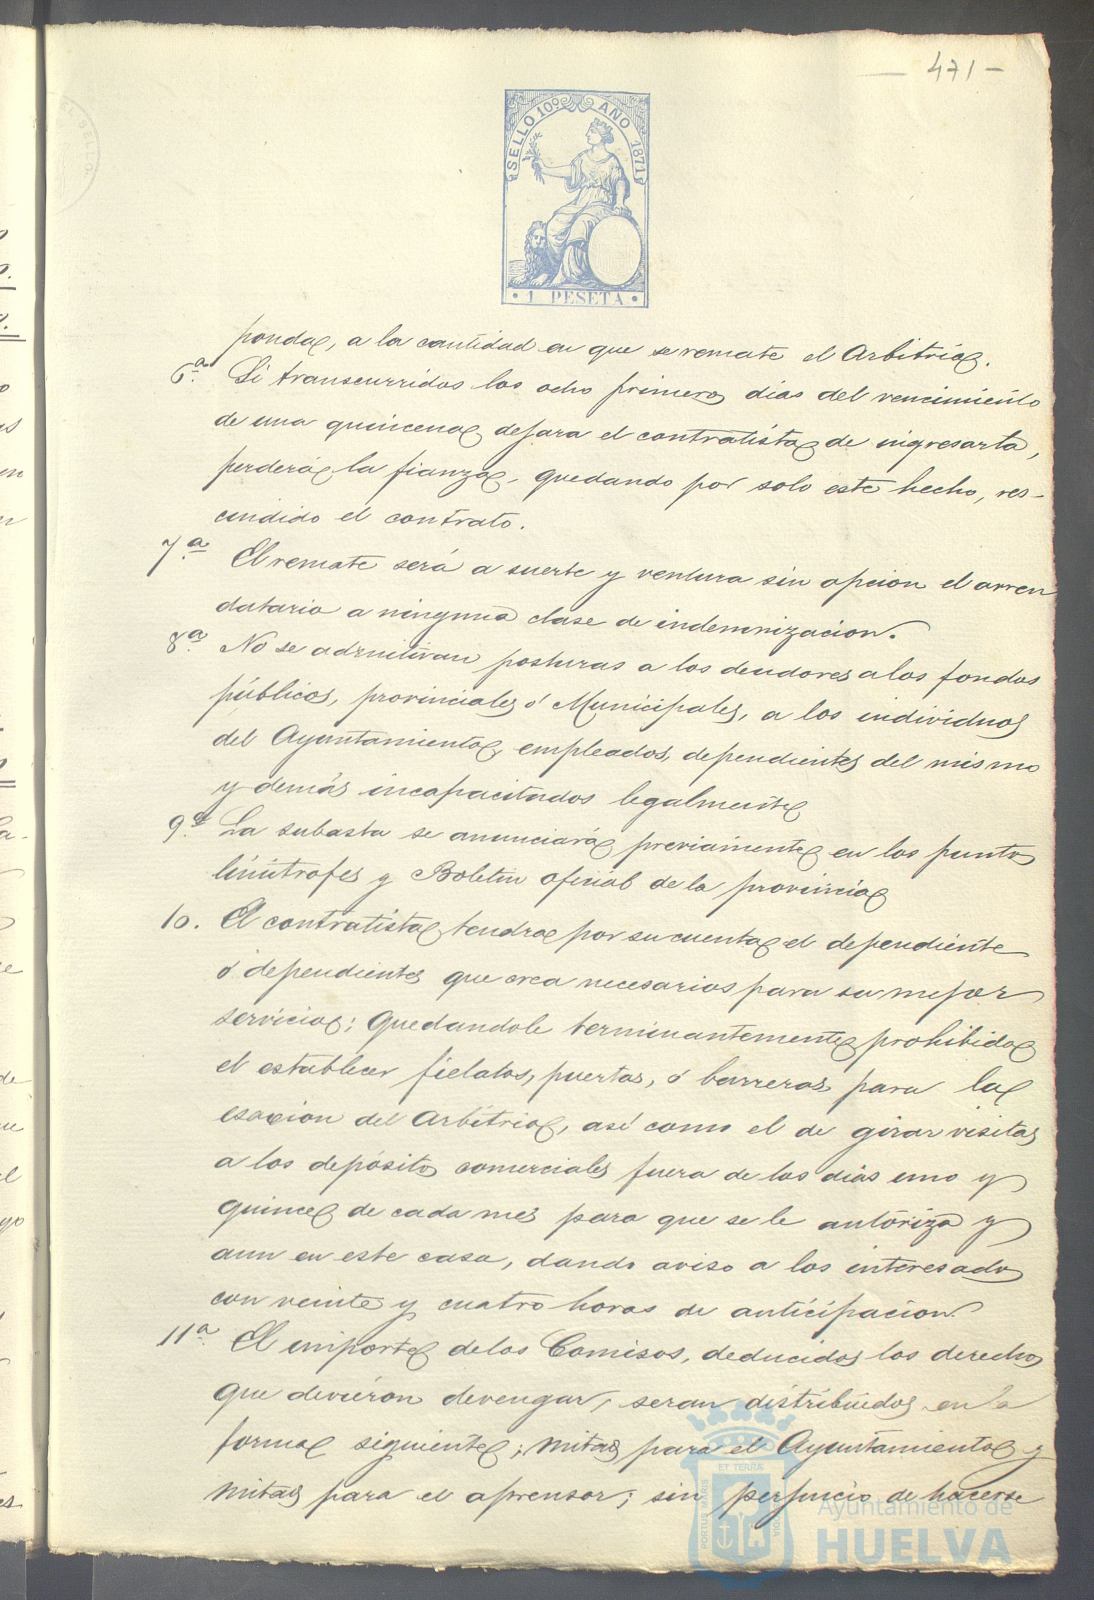 - 471 -
SELLO 10º AÑO 1871
· 1 PESETA ·
ponda, a la cantidad en que se remate el Arbitrio.
6.ª Si transcurridos los ocho primeros dias del vencimiento
de una quincena dejara el contratista de ingresarla,
perderá la fianza, quedando por solo este hecho, res-
cindido el contrato.
7.ª El remate será a suerte y ventura sin opcion el arren
datario a ninguna clase de indemnizacion.
8.ª No se admitiran posturas a los deudores a los fondos
públicos, provinciales ó Municipales, a los individuos
del Ayuntamiento, empleados, dependientes del mismo
y demás incapacitados legalmente
9.ª La subasta se anunciará previamente en los puntos
limitrofes y Boletin oficial de la provincia
10. El contratista tendra por su cuenta el dependiente
ó dependientes que crea necesarios para su mejor
servicio; quedandole terminantemente prohibido
el establecer fielatos, puertas, ó barreras para la
esaccion del Arbitrio, asi como el de girar visitas
a los depósitos comerciales fuera de los dias uno y
quince de cada mes para que se le autoriza y
aun en este caso, dando aviso a los interesados
con veinte y cuatro horas de anticipacion.
11.ª El importe de los Comisos, deducidos los derechos
que devieron devengar, seran distribuidos en la
forma siguiente; mitad para el Ayuntamiento y
mitad para el aprensor; sin perjuicio de hacerse
PORTUS MARIS
ET TERRÆ
CUSTODIA
Ayuntamiento de
HUELVA